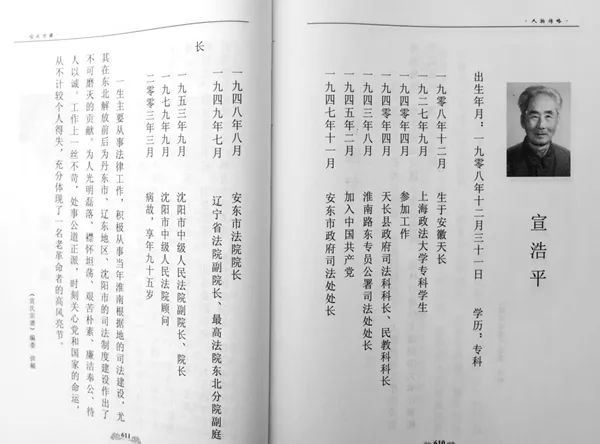 ·人物传略·
宣浩平
出生年月：一九零八年十二月三十一日 学历：专科
一九零八年十二月 生于安徽天长
一九二七年九月 上海政法大学专科学生
一九四零年四月 参加工作
一九四零年四月 天长县政府司法科科长、民教科科长
一九四三年八月 淮南路东专员公署司法处处长
一九四五年二月 加入中国共产党
一九四七年十一月 安东市政府司法处处长
610
一九四八年八月 安东市法院院长
一九四九年七月 辽宁省法院副院长、最高法院东北分院副庭
长
一九五三年九月 沈阳市中级人民法院副院长、院长
一九七九年九月 沈阳市中级人民法院顾问
二零零三年三月 病故，享年九十五岁
一生主要从事法律工作，积极从事当年淮南根据地的司法建设，尤
其在东北解放前后为丹东市、辽东地区、沈阳市的司法制度建设作出了
不可磨灭的贡献。为人光明磊落、襟怀坦荡、艰苦朴素、廉洁奉公、待
人以诚。工作上一丝不苟，处事公道正派，时刻关心党和国家的命运，
从不计较个人得失，充分体现了一名老革命者的高风亮节。
《宣氏宗谱》编委 供稿
611